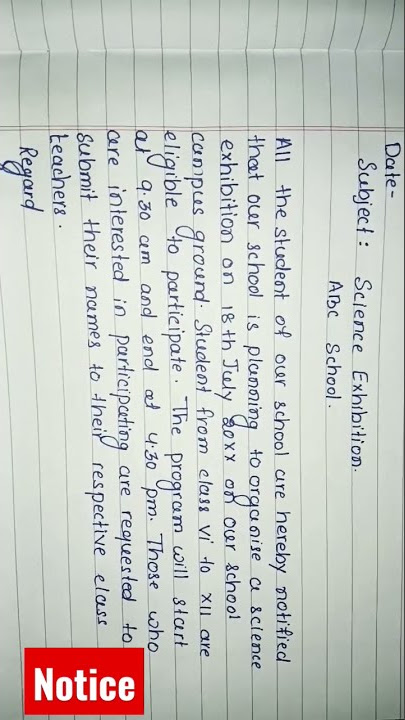 Date-
Subject: Science Exhibition.
ABC School.
All the student of our school are hereby notified
that our school is planning to organise a science
exhibition on 18th July 20xx on our school
campus ground. Student from class VI to XII are
eligible to participate. The program will start
at 9.30 am and end at 4.30 pm. Those who
are interested in participating are requested to
submit their names to their respective class
teachers.
Regard
Notice